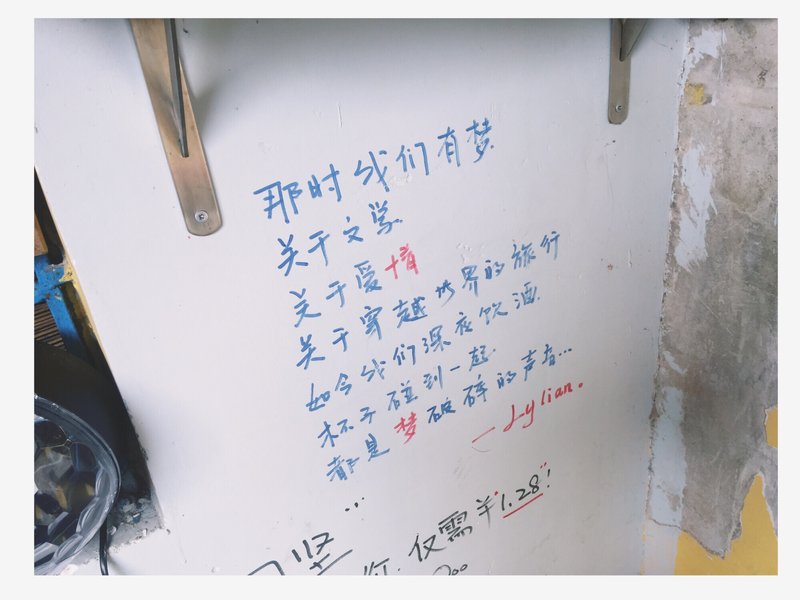 那时我们有梦
关于文学
关于爱情
关于穿越世界的旅行
如今我们深夜饮酒
杯子碰到一起
都是梦破碎的声音…
—Lylian.
…
仅需羊"1.28"!